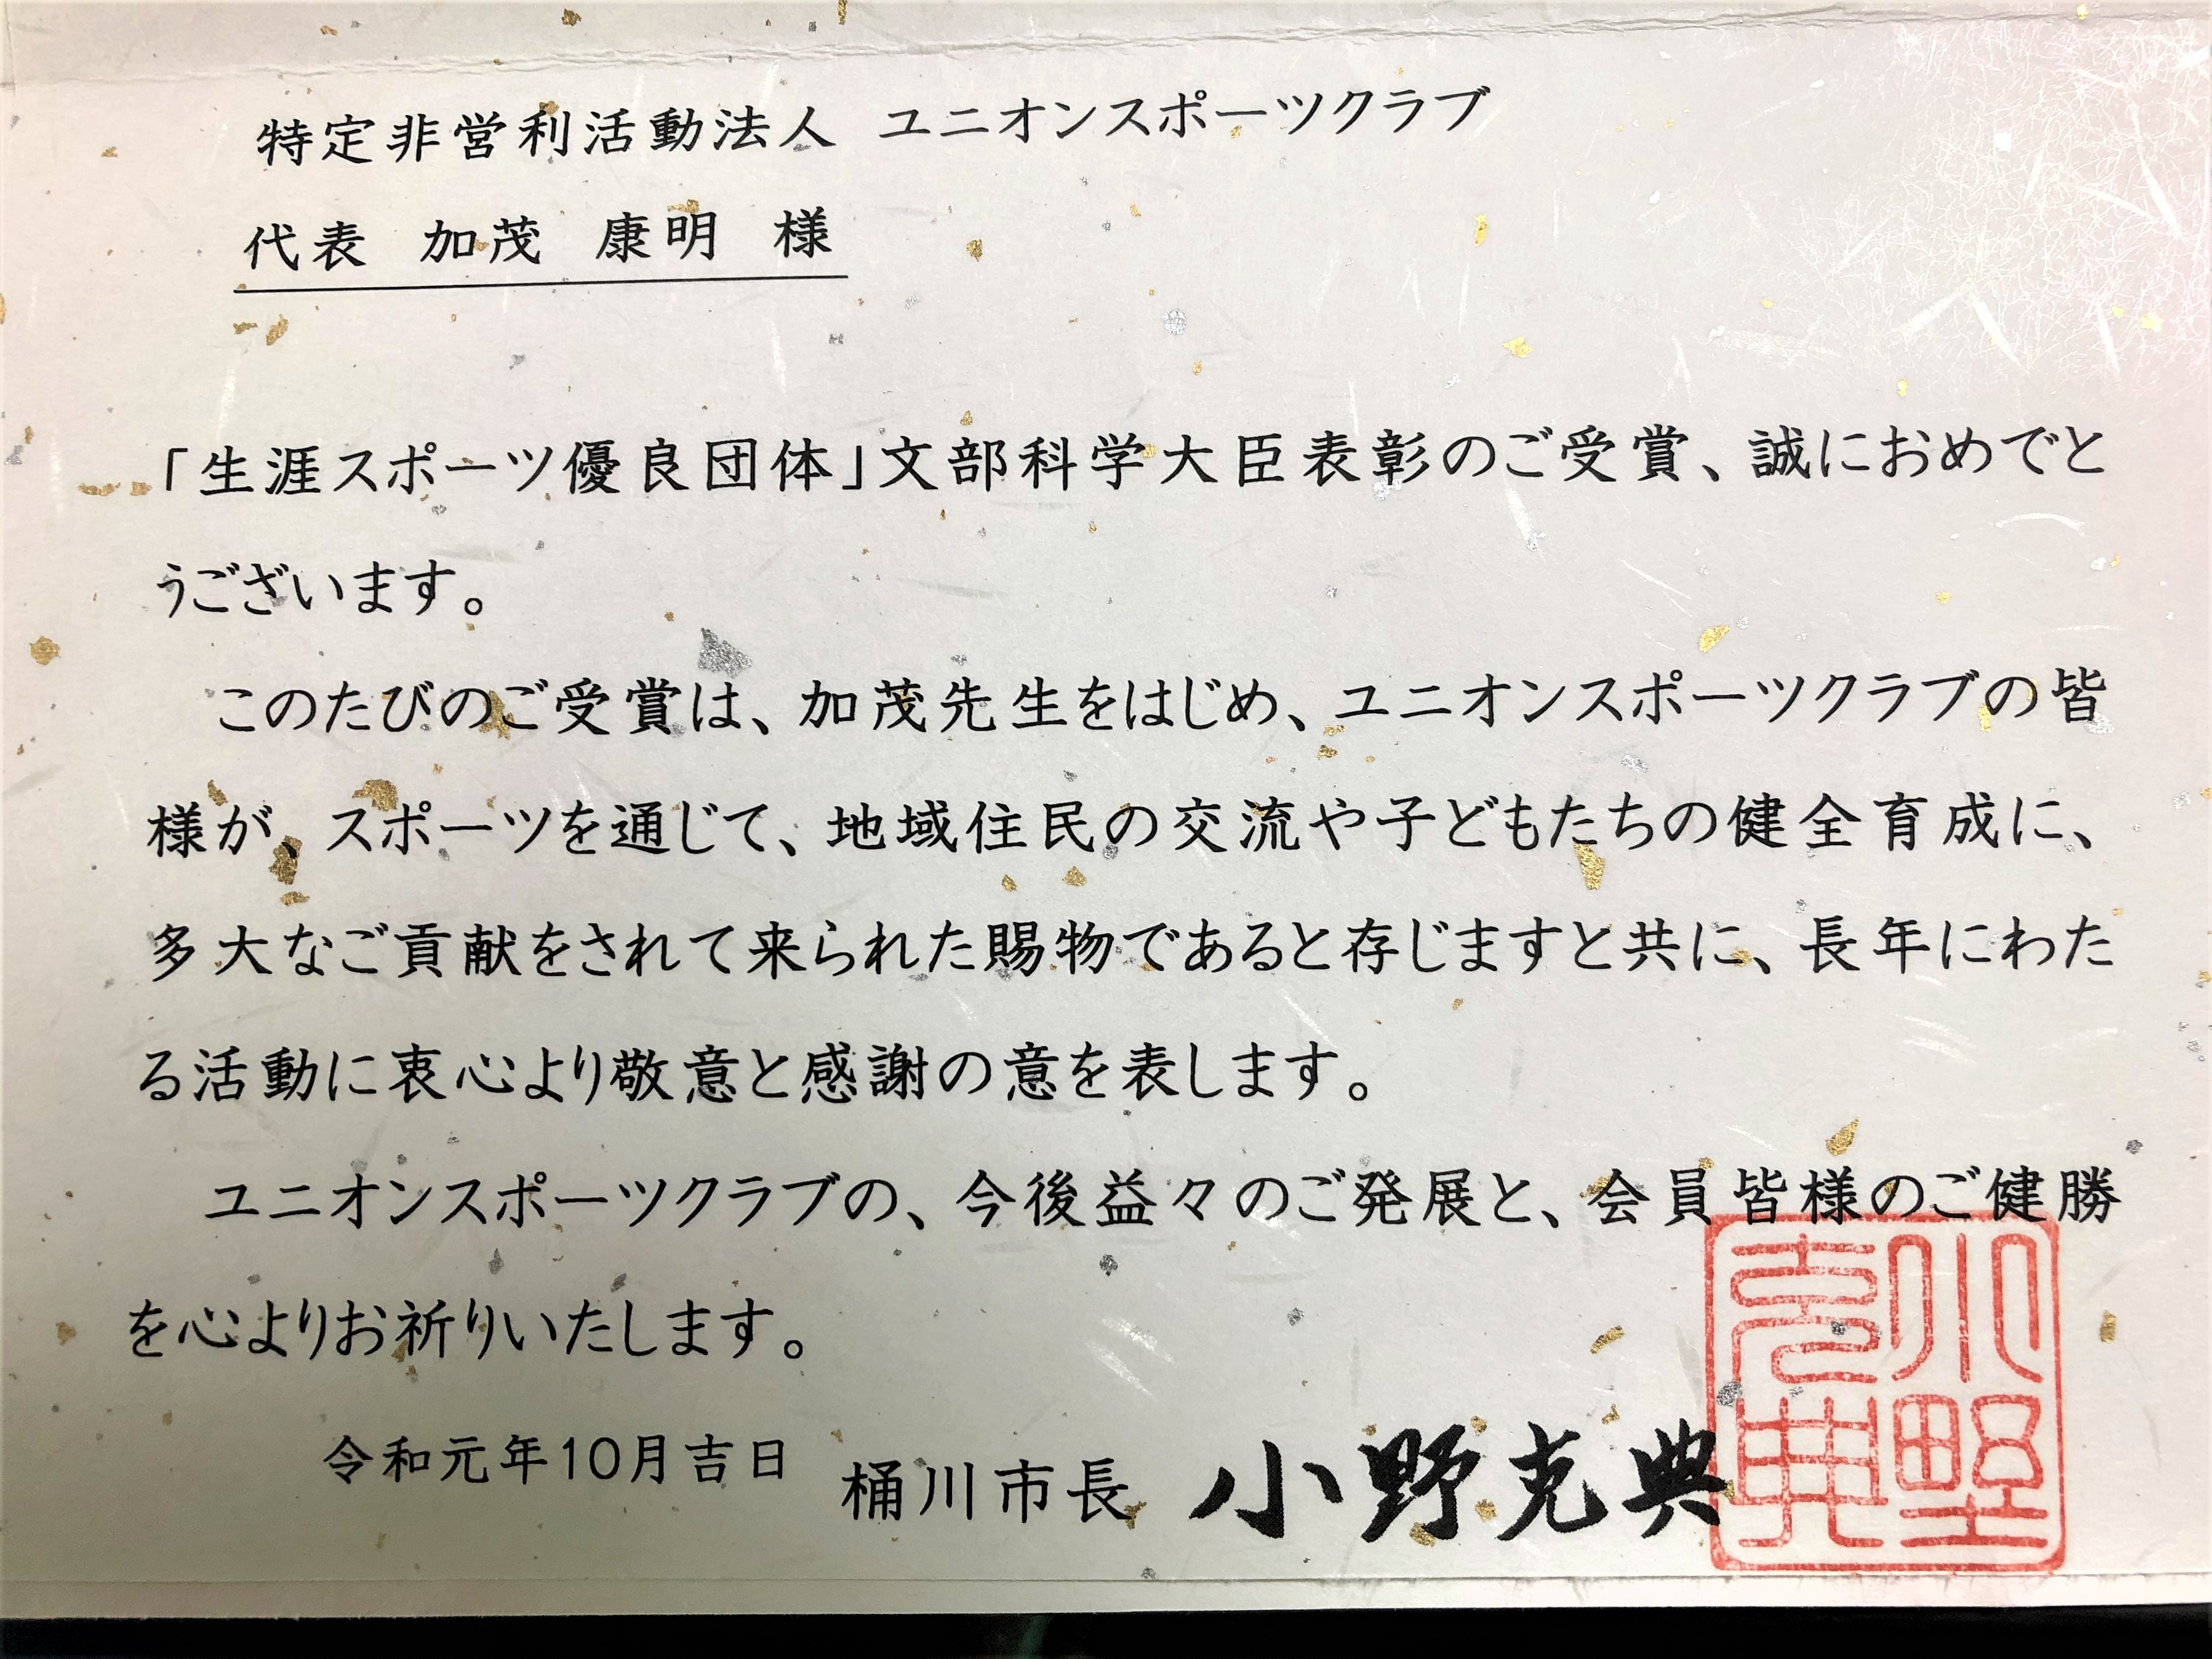 特定非営利活動法人　ユニオンスポーツクラブ
代表　加茂　康明　様
「生涯スポーツ優良団体」文部科学大臣表彰のご受賞、誠におめでと
うございます。
このたびのご受賞は、加茂先生をはじめ、ユニオンスポーツクラブの皆
様が、スポーツを通じて、地域住民の交流や子どもたちの健全育成に、
多大なご貢献をされて来られた賜物であると存じますと共に、長年にわた
る活動に衷心より敬意と感謝の意を表します。
ユニオンスポーツクラブの、今後益々のご発展と、会員皆様のご健勝
を心よりお祈りいたします。
令和元年10月吉日　桶川市長　小野克典
小野克典